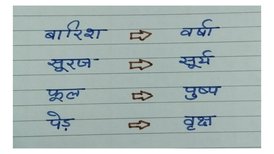 बारिश ⇨ वर्षा
सूरज ⇨ सूर्य
फूल ⇨ पुष्प
पेड़ ⇨ वृक्ष